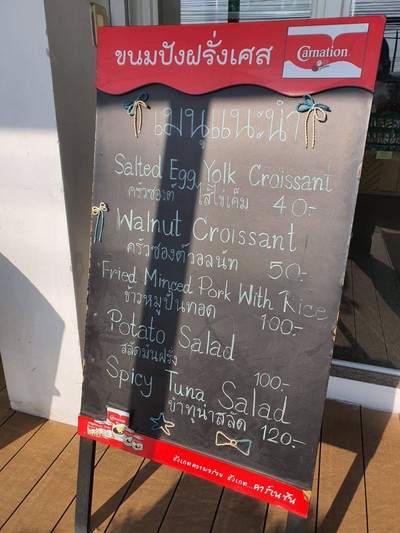 ขนมปังฝรั่งเศส
Carnation
เมนูแนะนำ
Salted Egg Yolk Croissant
ครัวซองต์ ไส้ไข่เค็ม 40.-
Walnut Croissant
ครัวซองต์วอลนัท 50.-
Fried Minced Pork With Rice
ข้าวหมูปั้นทอด 100.-
Potato Salad
สลัดมันฝรั่ง 100.-
Spicy Tuna Salad
ยำทูน่าสลัด 120.-
สังเกตความอร่อย สังเกต...คาร์เนชัน